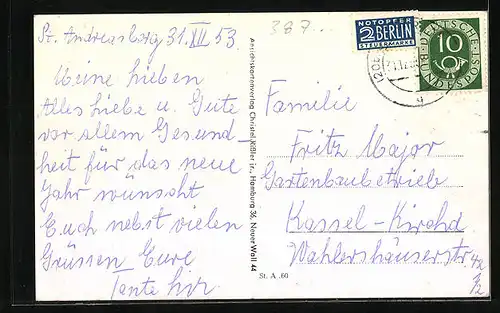 St. Andreasberg 31. XII 53
Meine Lieben
Alles Liebe u. Gute
vor allem Gesund-
heit für das neue
Jahr wünscht
Euch nebst vielen
Grüssen Eure
Tante
387.
NOTOPFER
2 BERLIN
STEUERMARKE
DEUTSCHE
BUNDESPOST
10
Familie
Fritz Major
Gartenbaubetrieb
Kassel-Kirchd
Wahlershäuserstr
42
1/2
Ansichtskartenverlag Christel Kißler jr., Hamburg 36, Neuer Wall 44
St. A. 60